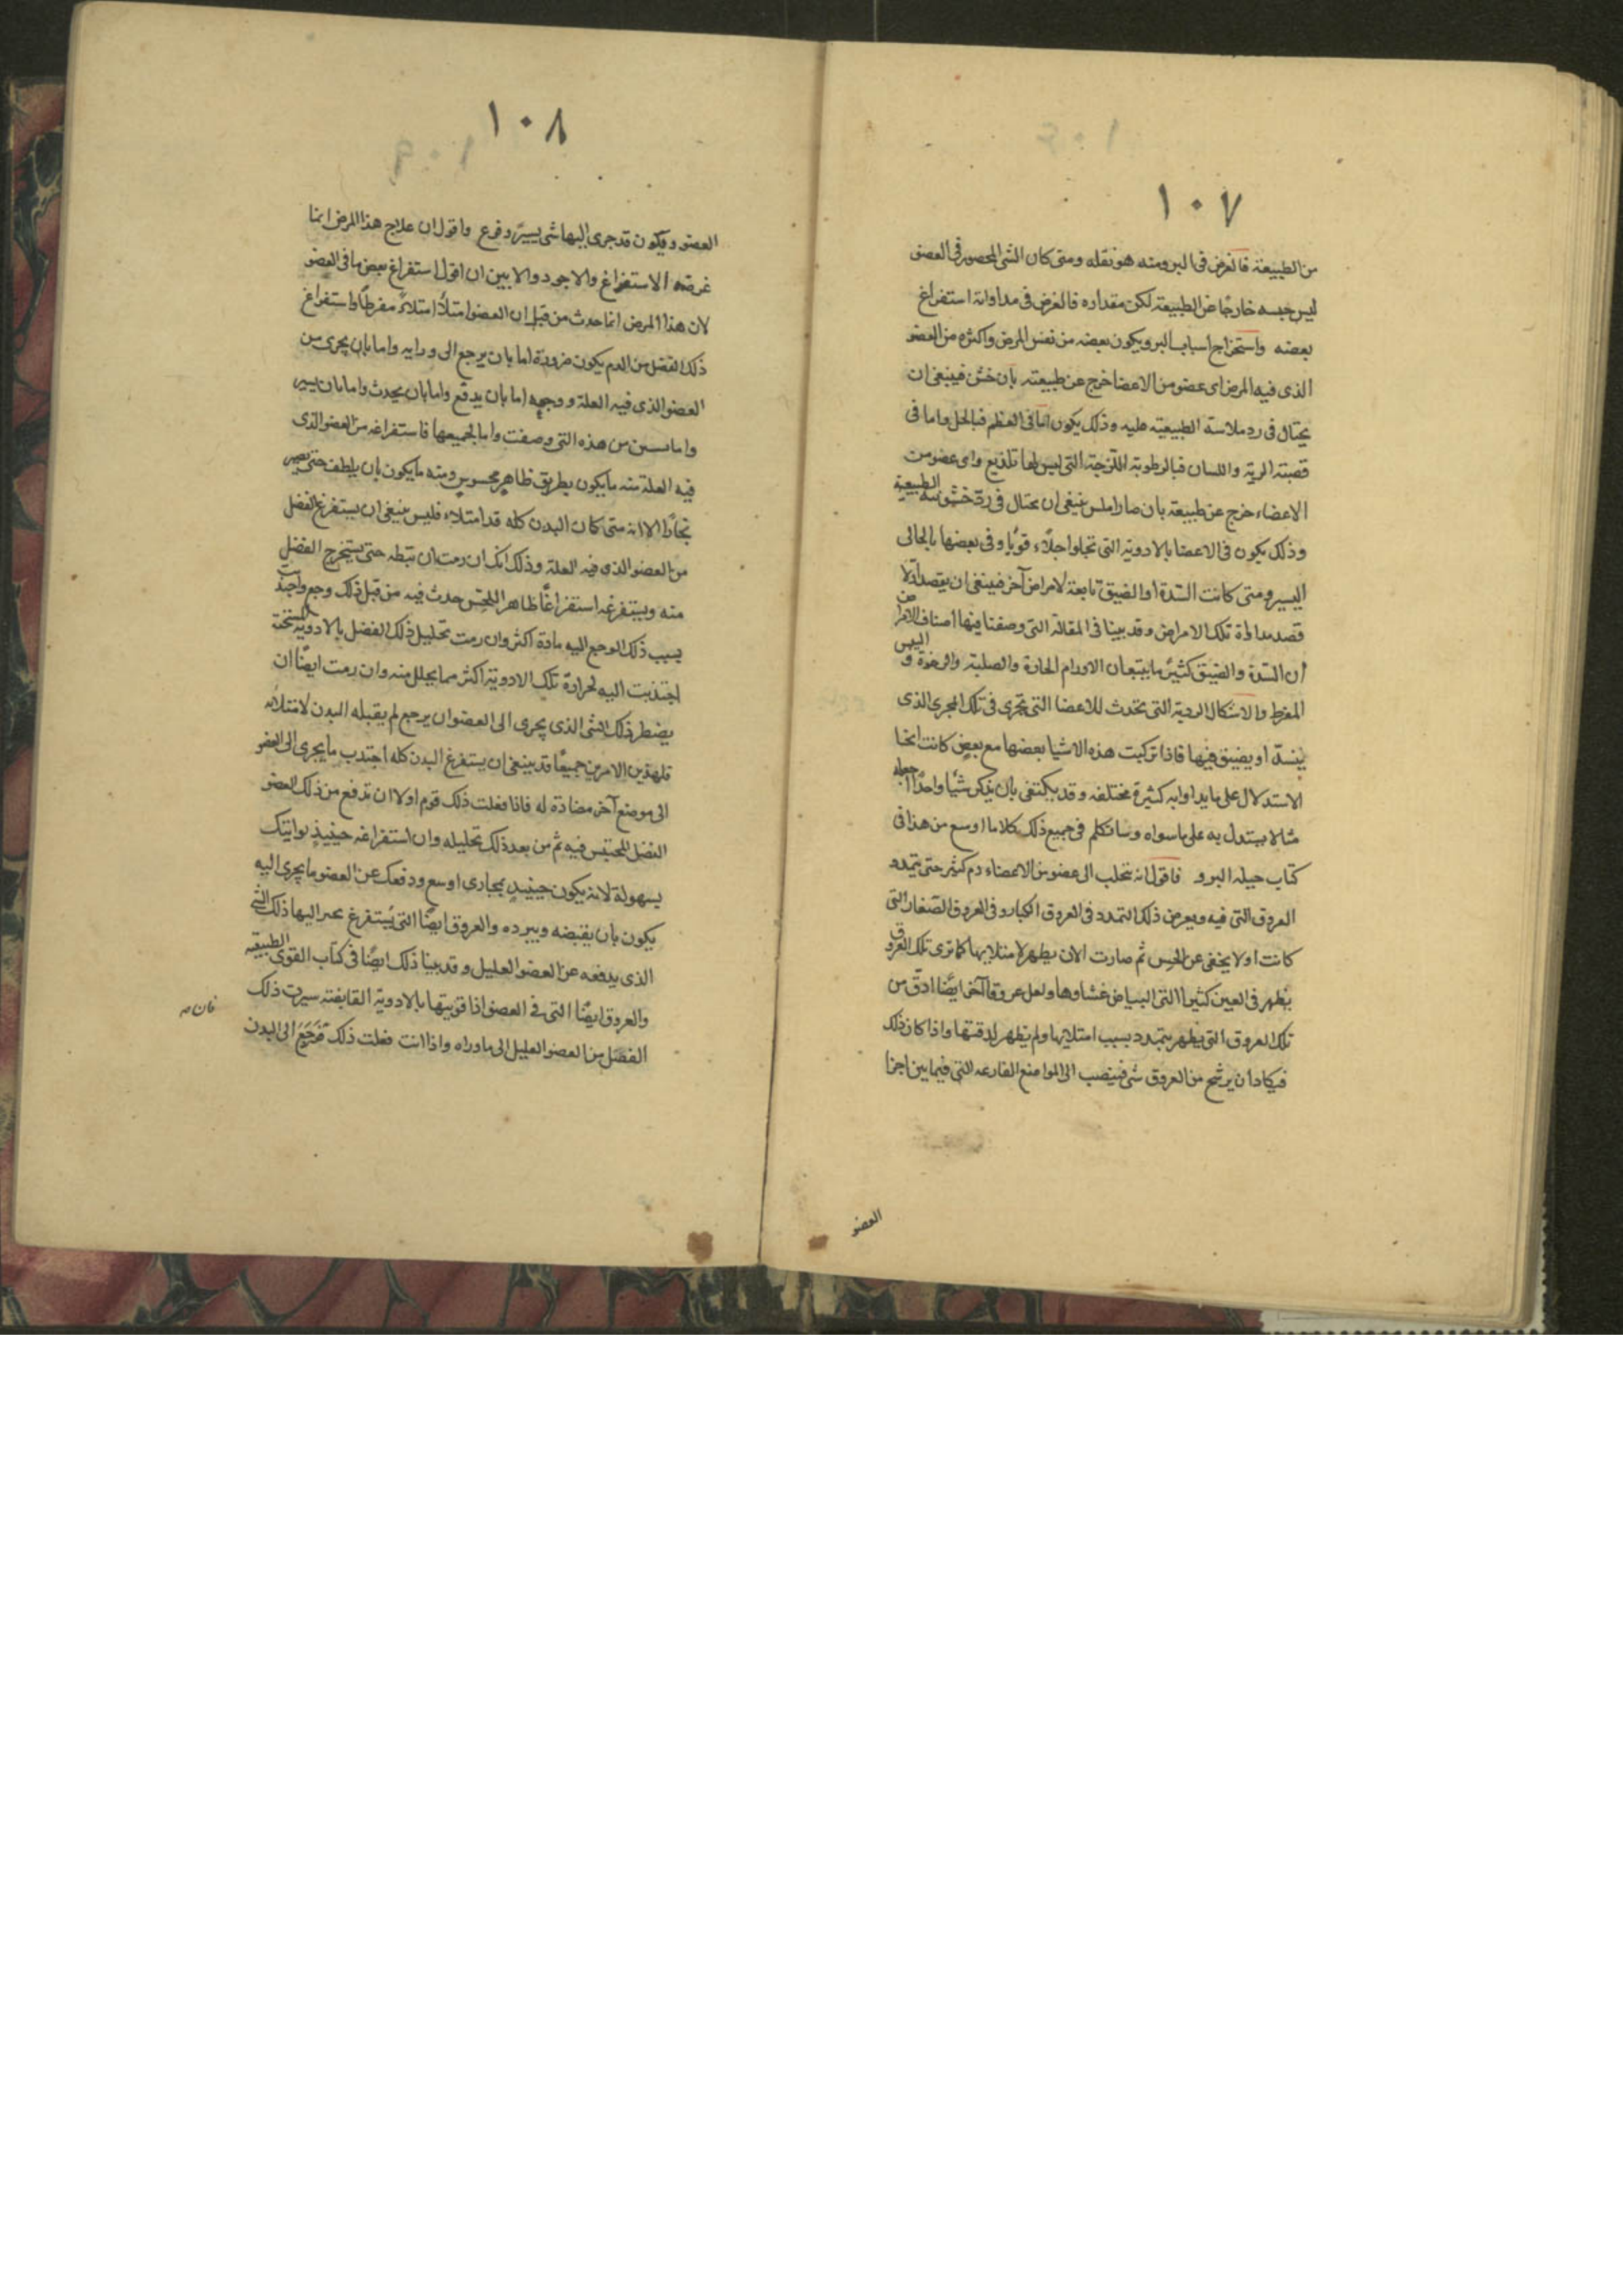 ١٠٧
من الطبيعة فالغرض فى البرو منه هو نقله ومتى كان الشى المحصور فى العضو
ليس جنسه خارجًا عن الطبيعة لكن مقداره فالغرض فى مداواته استفراغ
بعضه واستخراج اسباب البرو يكون بعضه من نفس المرض واكثره من العضو
الذى فيه المرض اى عضو من الاعضا خرج عن طبيعته بان خشن فينبغى ان
يحتال فى رد ملاسة الطبيعيه عليه وذلك يكون اما فى العظم فبالحل واما فى
قصبة الرية واللسان فبالرطوبة اللزجة التى ليس لها تلذيع واى عضو من
الاعضاء خرج عن طبيعته بان صار املس ينبغى ان يحتال فى ردّ خشونته الطبيعية
وذلك يكون فى الاعضا بالادوية التى تجلوا جلاء قويًا وفى بعضها بالجالى
اليسير ومتى كانت السّدة او الضيق تابعة لامراض آخر فينبغى ان يقصد اولا
قصد مداواة تلك الامراض وقد بينا فى المقالة التى وصفنا فيها أصناف الامراض
أن السّدة والضيق كثيرً ما يتبعان الاورام الحارة والصلبة والرخوة و اليبس
المفرط والاشكال الردية التى تحدث للاعضا التى تجرى فى تلك المجرى الذى
ينسدّ او يضيق فيها فاذا تركبت هذه الاشيا بعضها مع بعض كانت انحا
الاستدلال على ما يداوا به كثيرة مختلفه وقد يكتفى بان يذكر شيًا واحدًا جعله
مثالا يستدل به على ما سواه وسانكلم فى جميع ذلك كلاما اوسع من هذا فى
كتاب حيلة البرو فاقول انه تحلب الى عضو من الاعضاء دم كثير حتى يتمدد
العروق التى فيه ويعرض ذلك التمدد فى العروق الكبار وفى العروق الصّغار التى
كانت اولا يخفى عن الحس ثم صارت الان يظهر لامتلايها كما ترى تلك العروق
يظهر فى العين كثيرا التى البياض غشاوها ولعل عروقا آخر ايضًا ادقّ من
تلك العروق التى يظهر يتمدد بسبب امتلايها ولم يظهر لدقتها واذا كان ذلك
فيكاد ان يرشح من العروق شى فينصب الى المواضع الفارغه التى فيما بين اجزا
العضو
١٠٨
العضو ويكون قد جرى اليها شى يسيرً وفرغ واقول ان علاج هذا المرض انما
غرضه الاستفراغ والاجود والابين ان اقول استفراغ بعض ما فى العضو
لان هذا المرض انما حدث من قبل ان العضو امتلأ امتلاءً مفرطًا واستفراغ
ذلك الفضل من الدم يكون ضرورة اما بان يرجع الى ورايه واما بان يجرى من
العضو الذى فيه العلة ووجعه اما بان يدفع واما بان يجذب واما بان يسير
واما من هذه التى وصفت واما بجميعها فاستفراغه من العضو الذى
فيه العلة منه ما يكون بطريق ظاهر محسوس ومنه ما يكون بان يلطف حتى يصير
بخارًا الا انه متى كان البدن كله قد امتلاء فليس ينبغى ان يستفرغ الفضل
من العضو الذى فيه العلة وذلك انك ان رمت ان تبطه حتى يستخرج الفضل
منه ويستفرغه استفراغًا ظاهرا للحس حدث فيه من قبل ذلك وجع واجتذبت
بسبب ذلك الوجع اليه مادة اكثر وان رمت تحليل ذلك الفضل بالادوية المسخنة
اجتذبت اليه لحرارة تلك الادوية اكثر مما يحلل منه وان رمت ايضًا ان
يضطر ذلك الشى الذى يجرى الى العضو ان يرجع لم يقبله البدن لامتلائه
فلهذين الامرين جميعًا قد ينبغى ان يستفرغ البدن كله اجتذب ما يجرى الى العضو
الى موضع آخر مضادة له فاذا فعلت ذلك قوم اولا ان تدفع من ذلك العضو
الفضل المحتبس فيه ثم من بعد ذلك تحليله وان استفراغه حينيذٍ يواتيك
بسهولة لانه يكون حينيذٍ بمجارى اوسع ودفعك عن العضو ما يجرى اليه
يكون بان يقبضه ويبرده والعروق ايضًا التى يستفرغ عبر اليها ذلك الشى
الذى يدفعه عن العضو العليل وقد بينا ذلك ايضًا فى كتاب القوى الطبيعية
والعروق ايضًا التى فى العضو اذا قويتها بالادوية القابضة سيرت ذلك
الفضل من العضو العليل الى ما وراه واذا انت فعلت ذلك فرجع الى البدن
فان